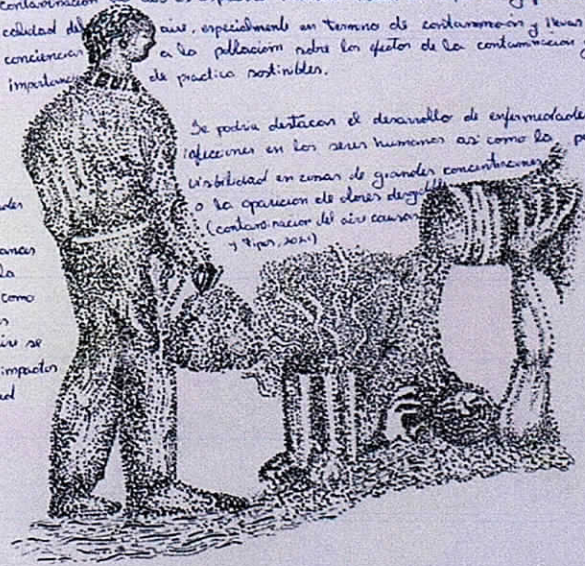 calidad del aire, especialmente en termino de contaminación y llevar
conciencias a la población sobre los efectos de la contaminación y
importanc de practica sostinibles.
LUIS
Se podria destacar el desarrollo de enfermedade
afecciones en los seres humanos asi como la p
visibilidad en zonas de grandes concentraciones
o la aparicion de olores desg
(contaminacion del aire causas
y tipos, 2021)
ances
la
como
s
ire se
impactos
ad